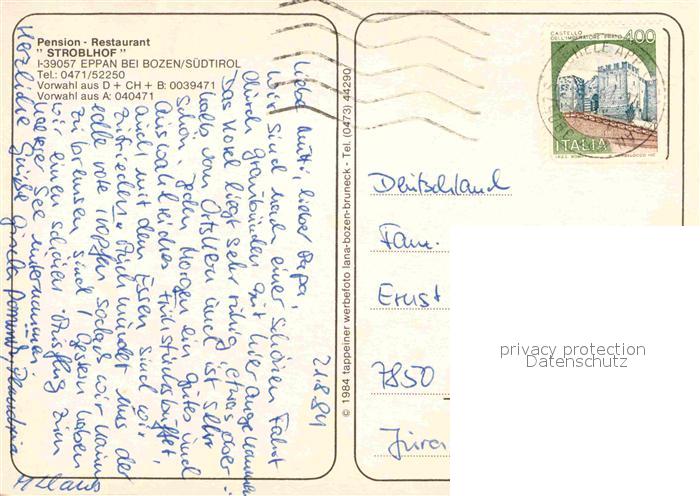 Pension - Restaurant
" STROBLHOF "
I-39057 EPPAN BEI BOZEN/SÜDTIROL
Tel.: 0471/52250
Vorwahl aus D + CH + B: 0039471
Vorwahl aus A: 040471
21.8.84
Liebe Mutti, lieber Papa,
wir sind nach einer schönen Fahrt
durch Graubünden gut hier angekommen
Das Hotel liegt sehr ruhig etwas ober-
halb vom Ortskern und ist sehr
schön. Jeden Morgen ein gutes und
Auswahlreiches Frühstücksbuffet,
und mit dem Essen sind wir
zufrieden. Auch mundet uns der
rote Tropfen sodass wir kaum
zu bremsen sind. Gestern haben
wir einen schönen Ausflug zum
See unternommen.
Herzliche Grüsse
Klaus
© 1984 tappeiner werbefoto lana-bozen-bruneck - Tel. (0473) 44290
CASTELLO
DELL'IMPERATORE PRATO
400
ITALIA
Deutschland
Fam.
Ernst
7850
privacy protection
Datenschutz